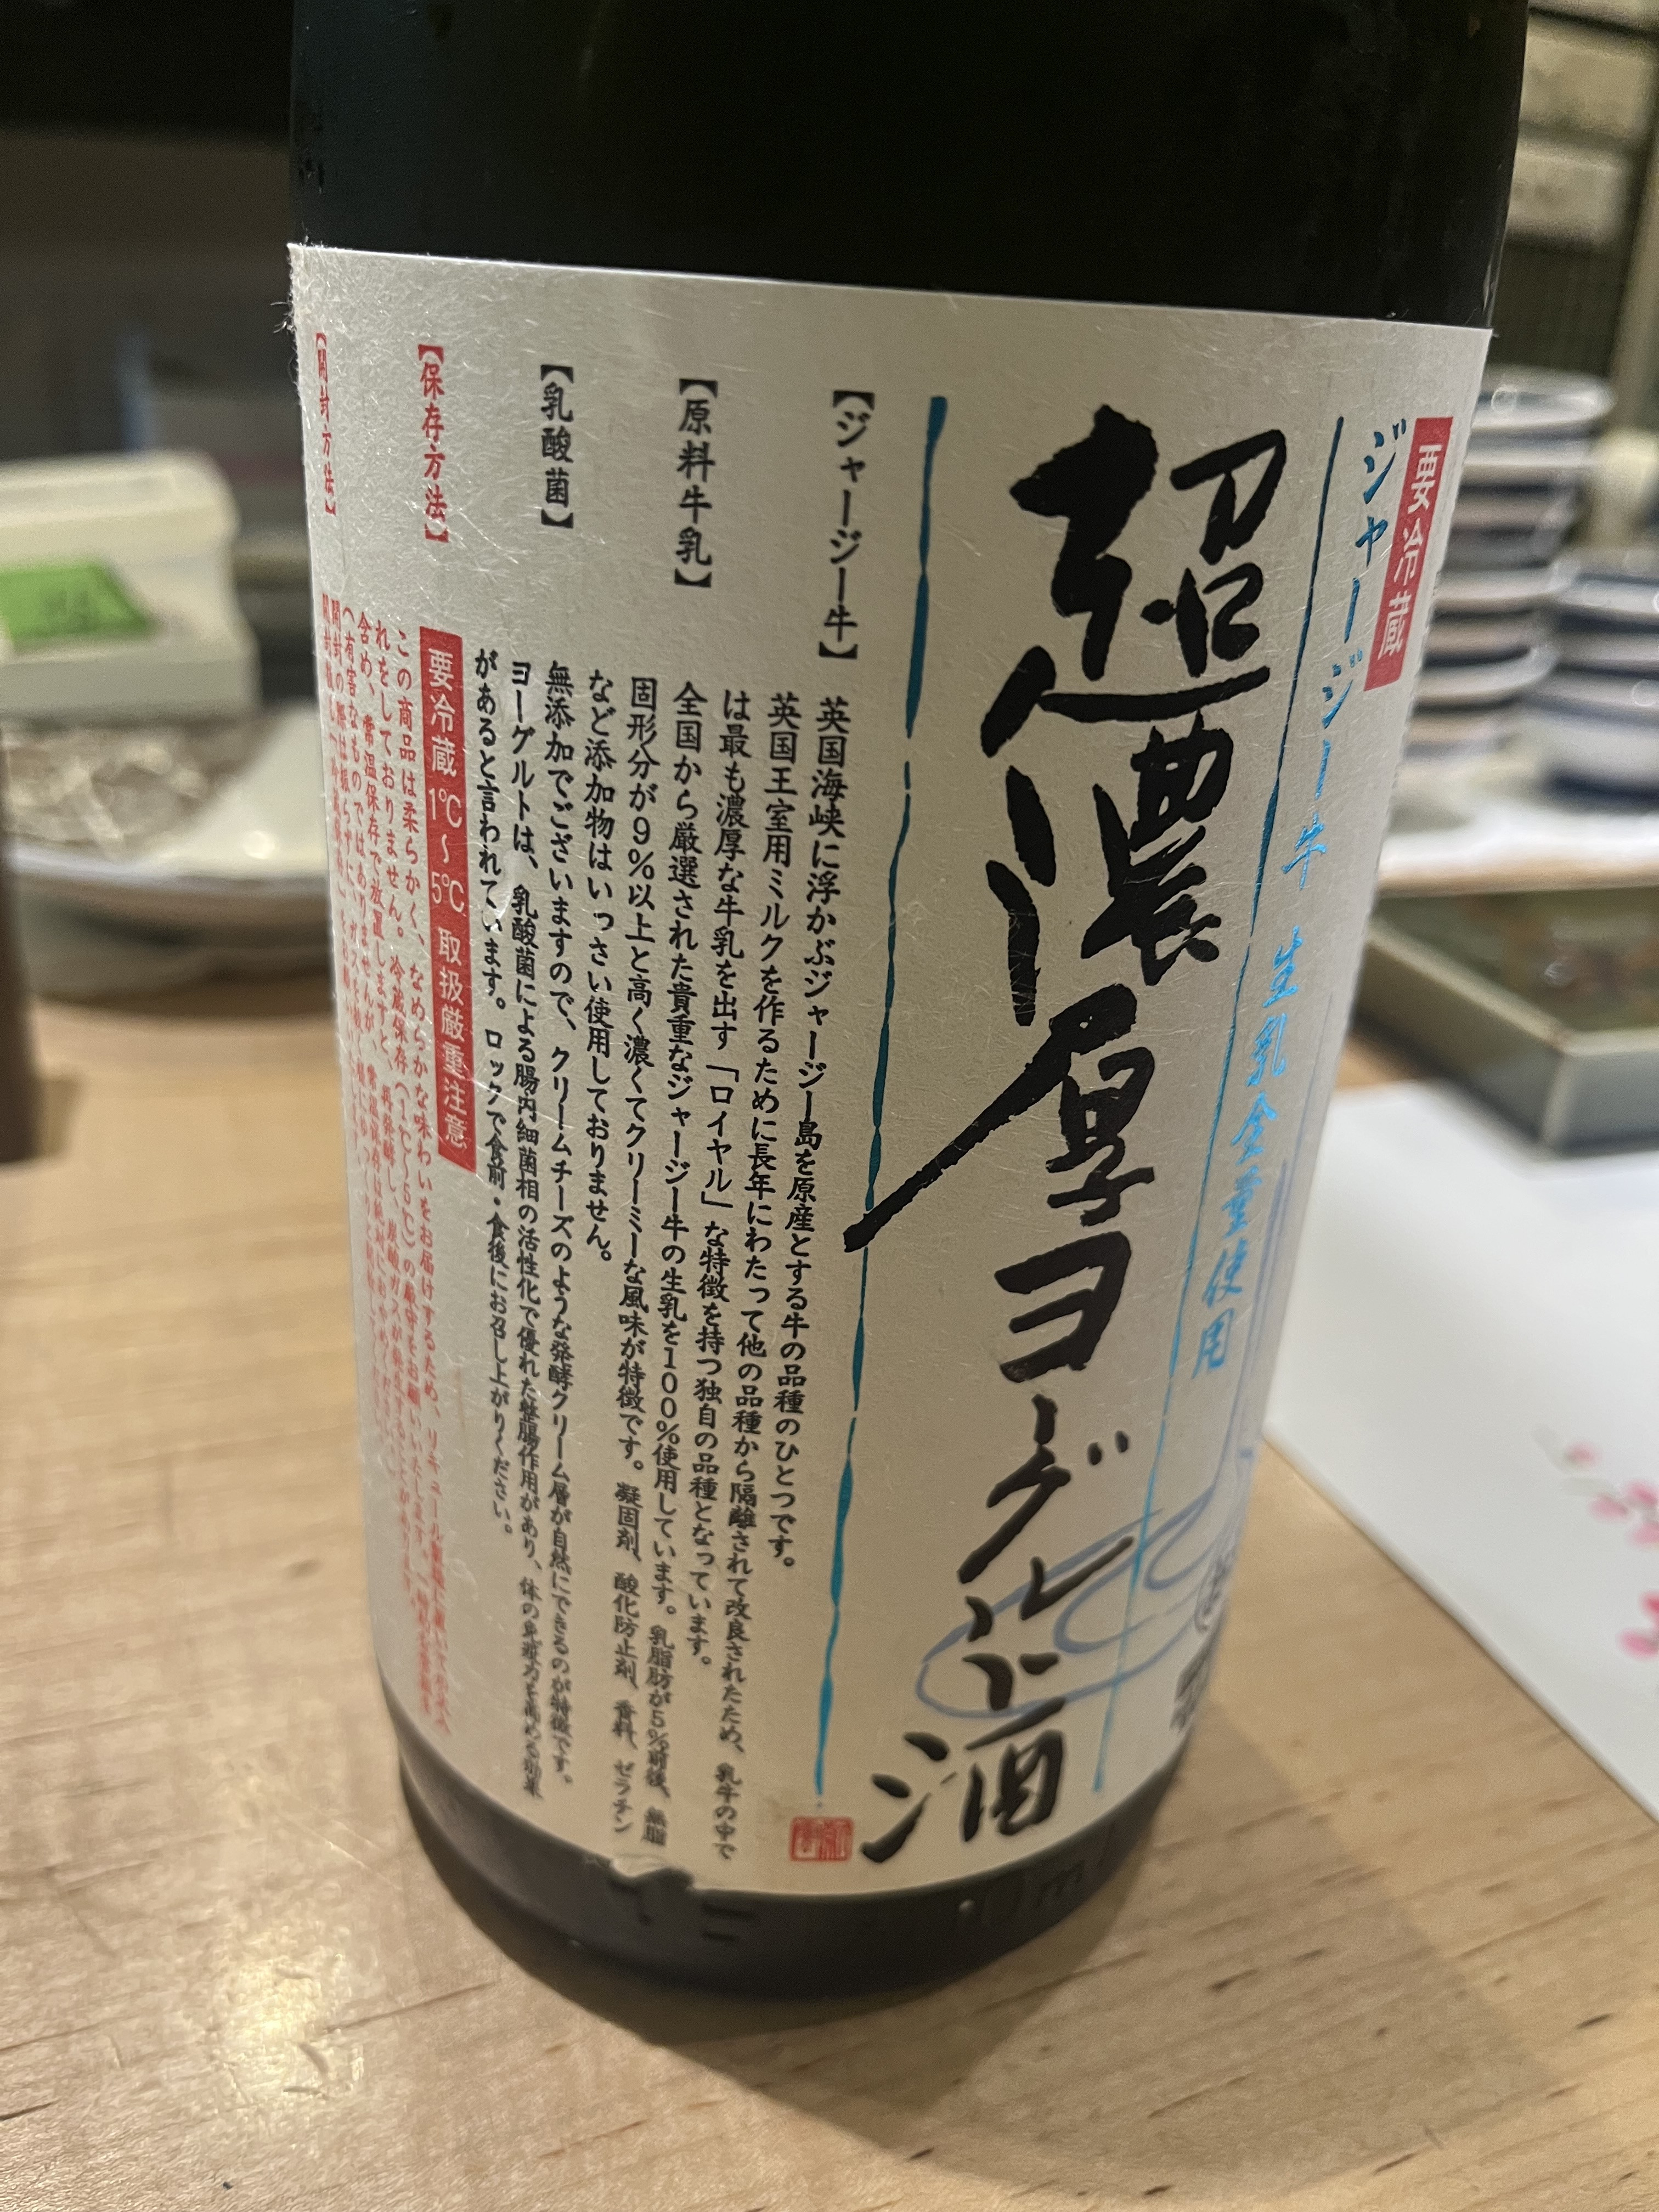 要冷蔵
ジャージー牛 生乳全量使用
超濃厚ヨーグルト酒
【ジャージー牛】
英国海峡に浮かぶジャージー島を原産とする牛の品種のひとつです。
英国王室用ミルクを作るために長年にわたって他の品種から隔離されて改良されたため、乳牛の中で
は最も濃厚な牛乳を出す「ロイヤル」な特徴を持つ独自の品種となっています。
【原料牛乳】
全国から厳選された貴重なジャージー牛の生乳を100%使用しています。乳脂肪が5%前後、無脂
固形分が9%以上と高く濃くてクリーミーな風味が特徴です。凝固剤、酸化防止剤、香料、ゼラチン
など添加物はいっさい使用しておりません。
【乳酸菌】
無添加でございますので、クリームチーズのような発酵クリーム層が自然にできるのが特徴です。
ヨーグルトは、乳酸菌による腸内細菌相の活性化で優れた整腸作用があり、体の免疫力を高める効果
があると言われています。ロックで食前・食後にお召し上がりください。
【保存方法】
要冷蔵 1℃〜5℃ 取扱厳重注意
この商品は柔らかく、なめらかな味わいをお届けするため、
れをしておりません。冷蔵保存(1℃〜5℃)の厳守をお願いいたします。
含め、常温保存で放置しますと、再発酵し、炭酸ガスが発生することがあります。
(有害なものではありませんが、常温保存は絶対におやめください。)
【開封方法】
開封の際は振らずに、ガスを